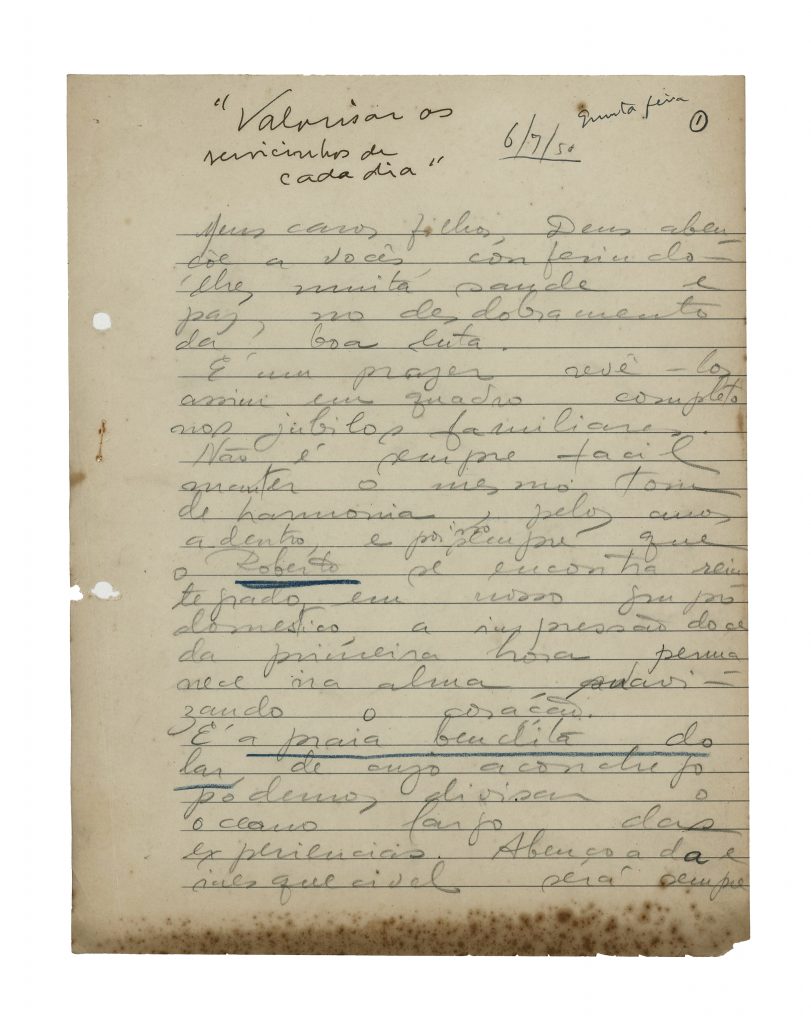 "Valorisar os
servicinhos de
cada dia"
6/7/50
quinta feira
1
Meus caros filhos, Deus aben
çôe a vocês conferindo-
lhes muita saude e
paz, no desdobramento
da boa luta.
É um prazer revê-los
assim em quadro completo
nos júbilos familiares.
Não é sempre facil
manter o mesmo tom
de harmonia, pelos anos
a dentro, e por isso sempre que
o Roberto se encontra rein
tegrado em nosso grupo
domestico, a impressão doce
da primeira hora perma
nece na alma suavi-
zando o coração.
É a praia bendita do
lar de cujo aconchego
podemos divisar o
oceano largo das
experiencias. Abençoada e
inesquecivel será sempre